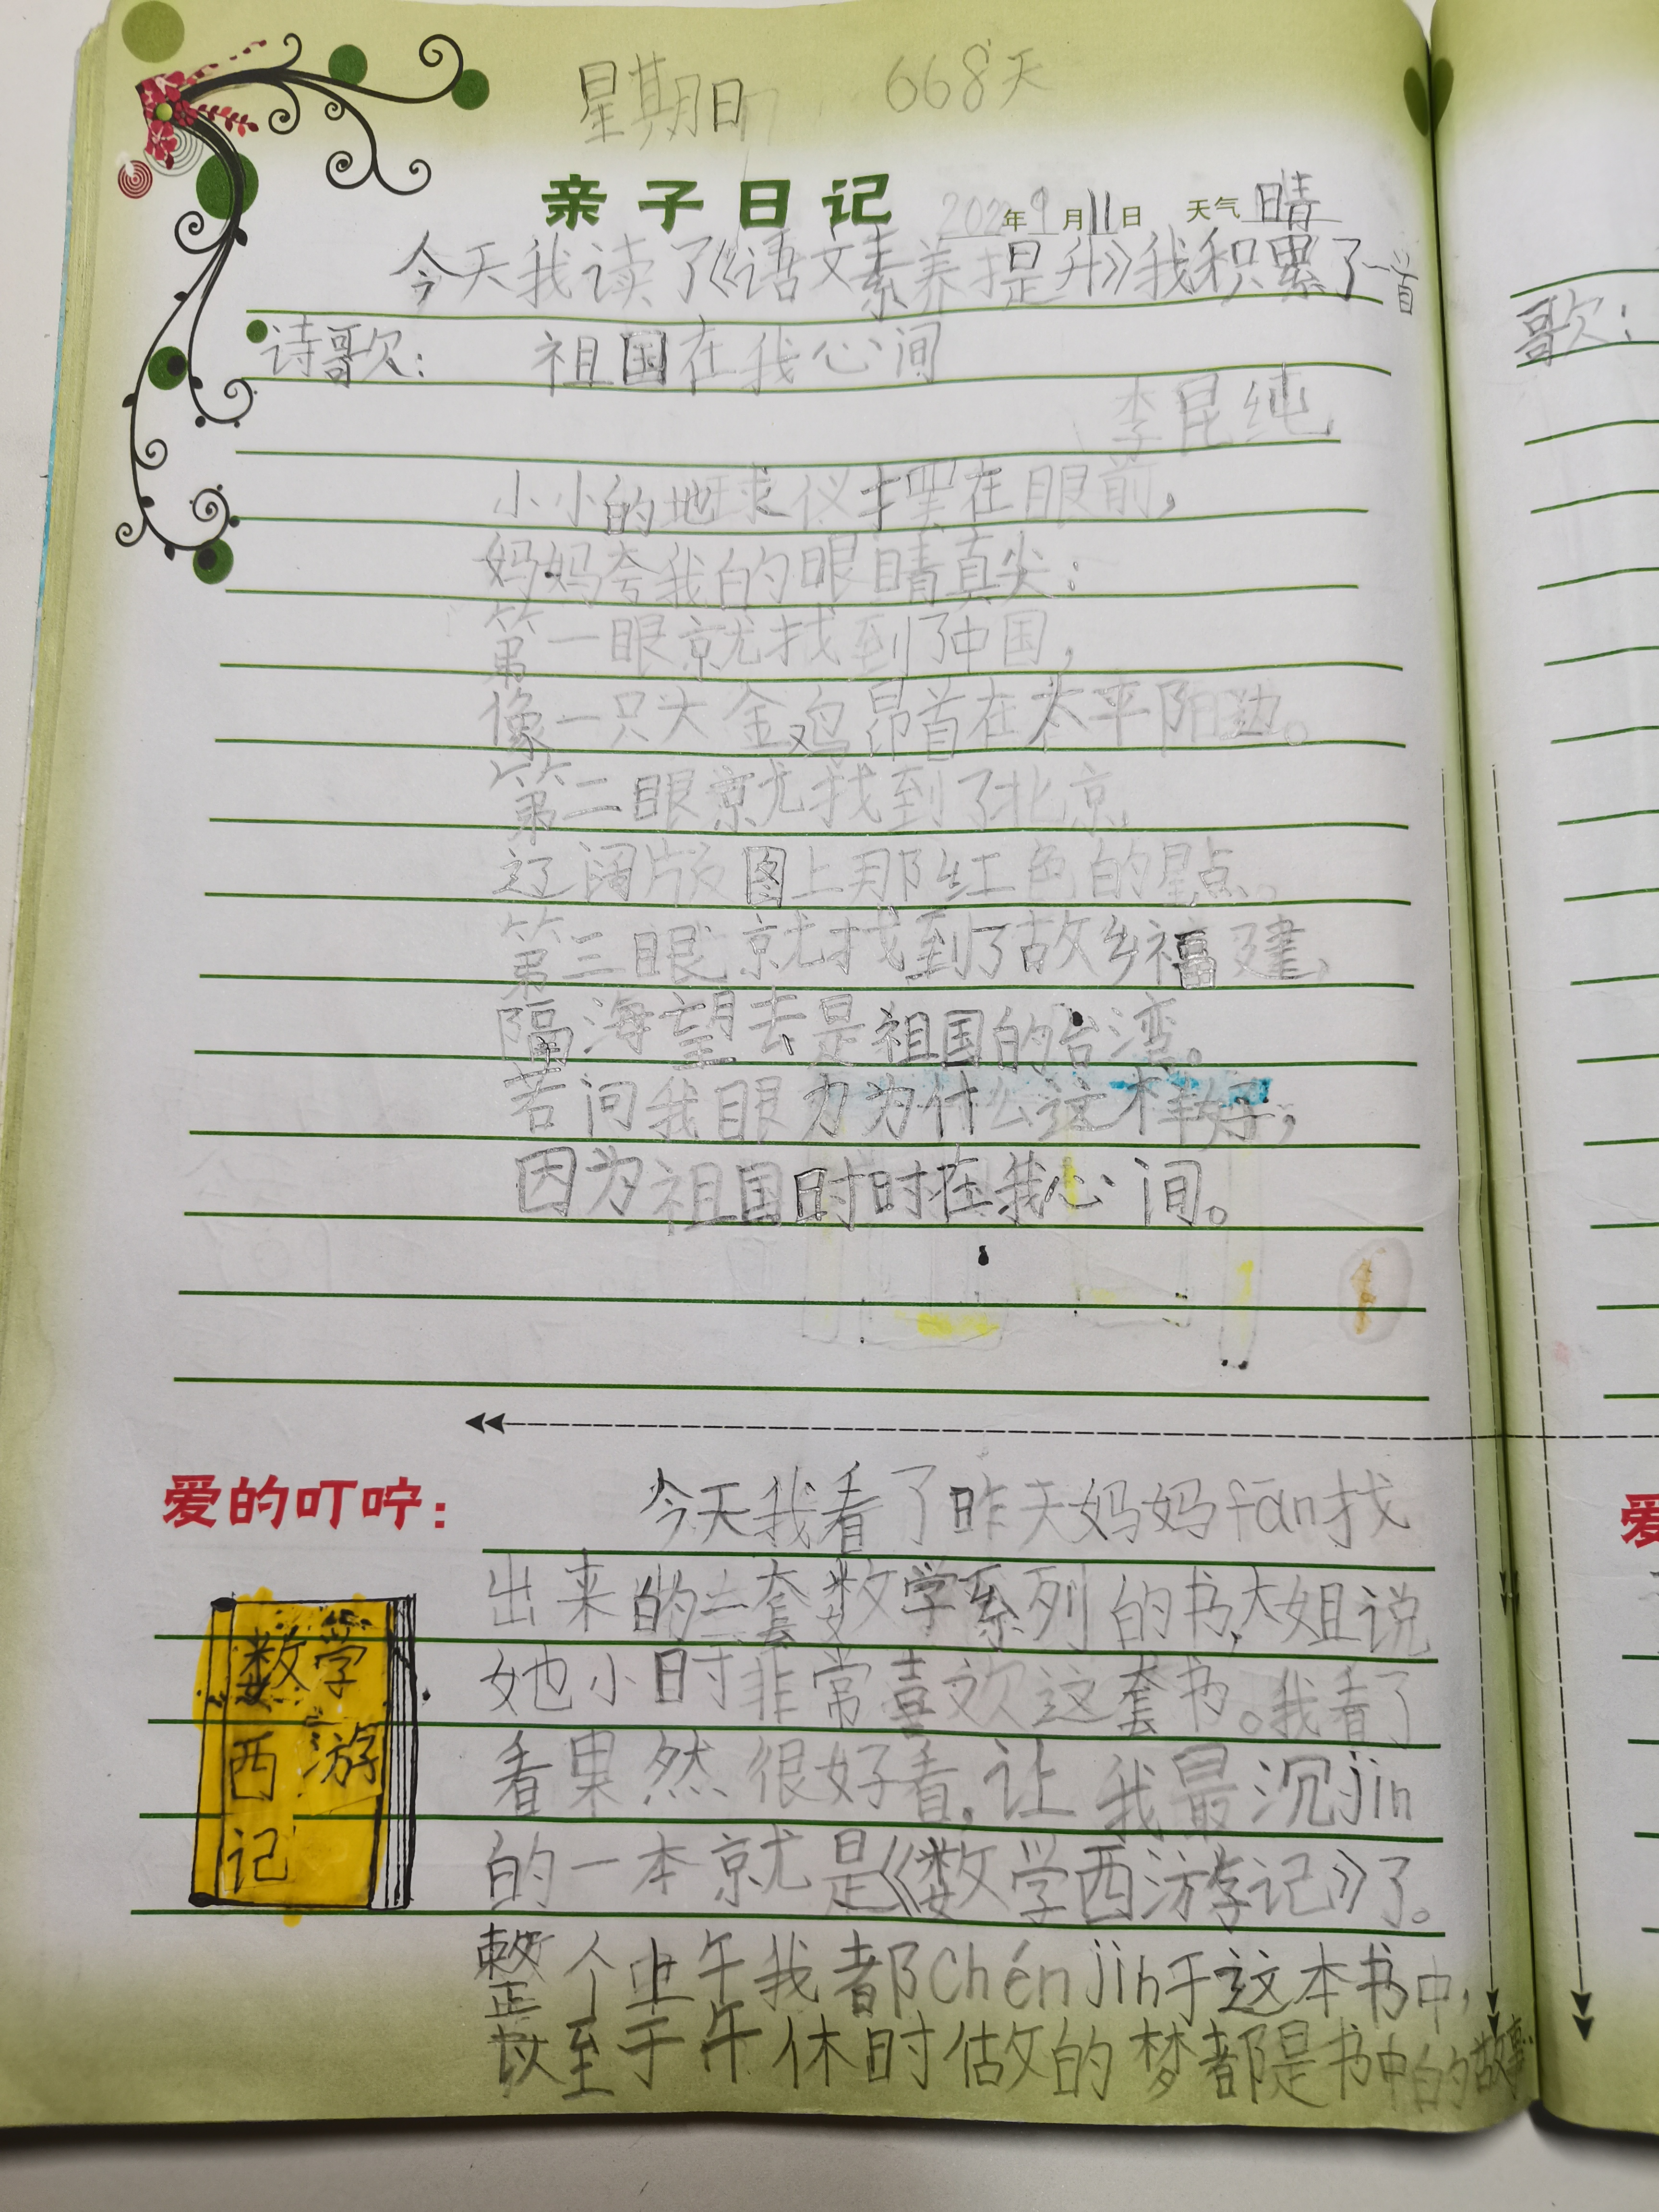 星期日 668天
亲子日记 2022年9月11日 天气 晴
今天我读了《语文素养提升》我积累了一首
诗歌: 祖国在我心间
李昆纯
小小的地球仪摆在眼前,
妈妈夸我的眼睛真尖:
第一眼就找到了中国,
像一只大金鸡昂首在太平阳边。
第二眼就找到了北京,
辽阔版图上那红色的星点。
第三眼就找到了故乡福建,
隔海望去是祖国的台湾。
若问我眼力为什么这样好,
因为祖国时时在我心间。
爱的叮咛:
今天我看了昨天妈妈fān找
出来的一套数学系列的书,大姐说
她小时非常喜欢这套书。我看了
看果然很好看,让我最沉jìn
的一本就是《数学西游记》了。
整个上午我都chén jìn于这本书中,
以至于午休时做的梦都是书中的故事
数学
西游
记
歌:
爱